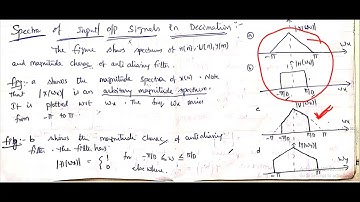 Spectra of Input/o/p Signals in Decimation:-
The figure shows spectrums of x(n), V(n), y(m)
and magnitude charac of anti aliasing filter.
fig:- a shows the magnitude spectra of x(n). Note
that |X(ωx)| is an arbitrary magnitude spectrum.
It is plotted w.r.t ωx. The freq ωx varies
from -π to π.
fig:- b shows the magnitude charac of anti aliasing
filter. The filter has
|H(ωx)| = { 1 for -π/D ≤ ω ≤ π/D
0 elsewhere.
a)
-π π ωx
b) |H(ωx)|
-π -π/D π/D π ωx
c |V(ωx)|
-π -π/D π/D π
d
-π π ωy